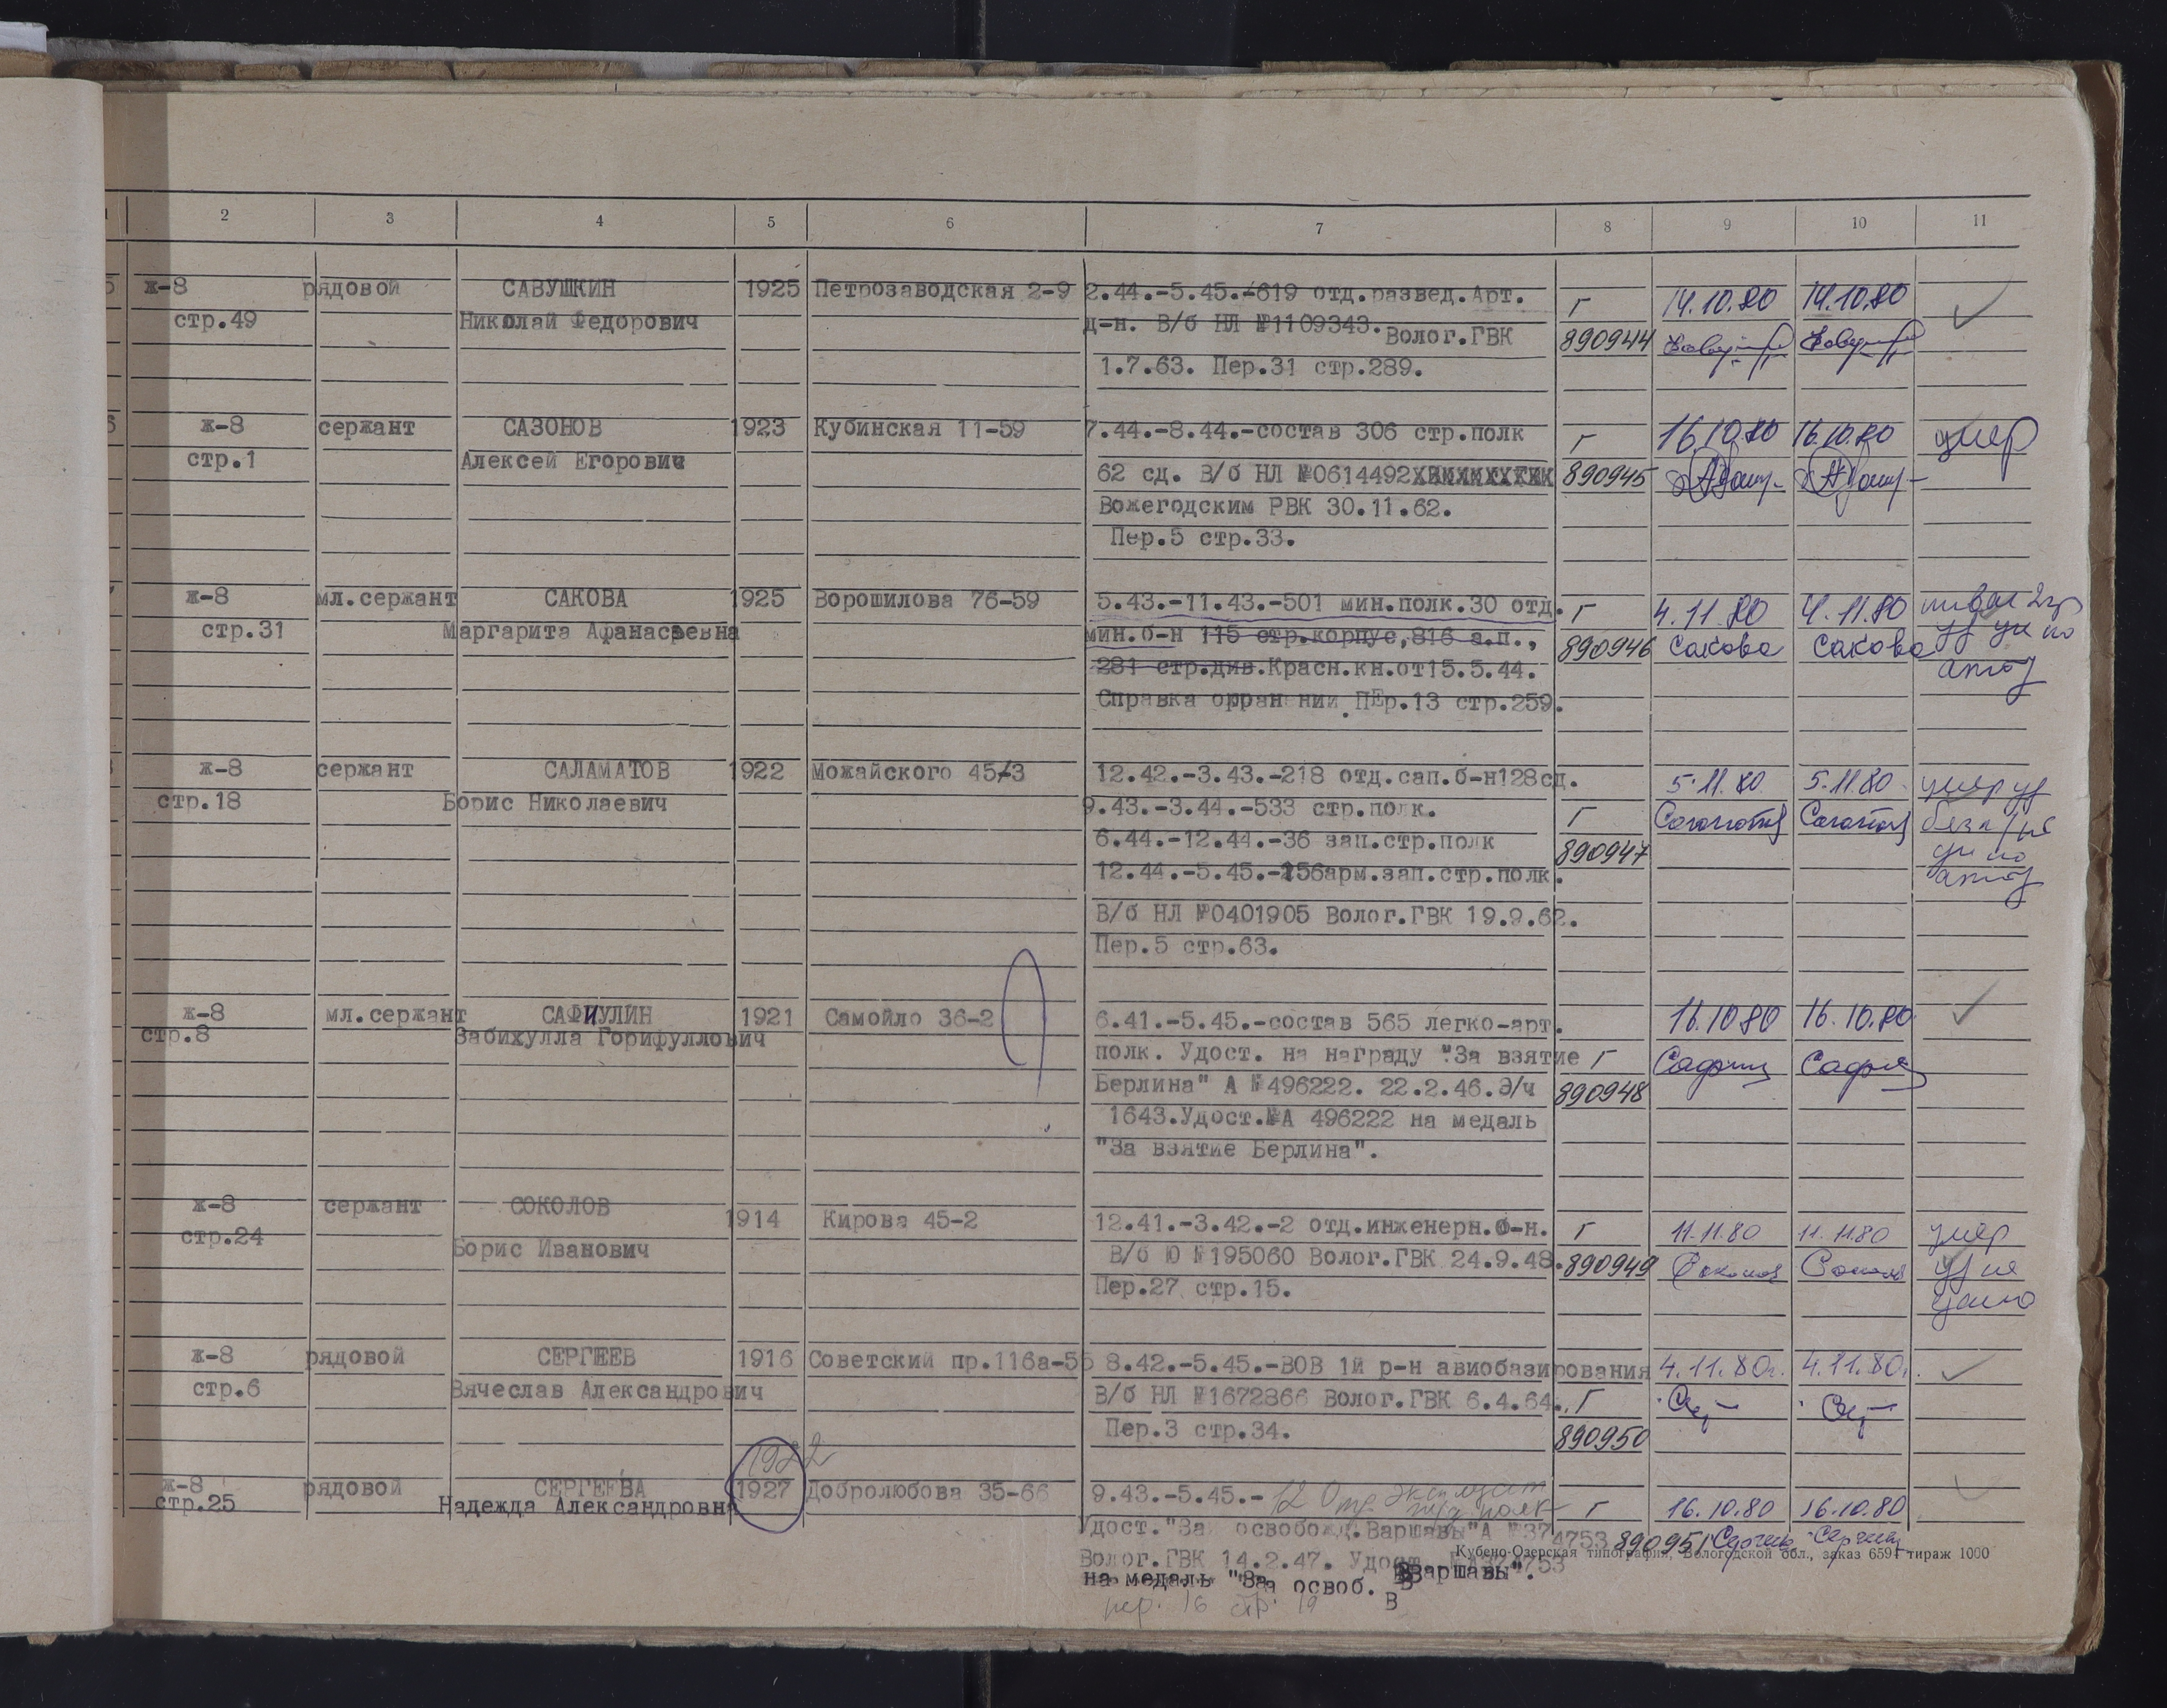 2 3 4 5 6 7 8 9 10 11
ж-8 рядовой САВУШКИН 1925 Петрозаводская 2-9 2.44.-5.45.-619 отд.развед.Арт. Г 14.10.80 14.10.80
стр.49 Николай Федорович д-н. В/б НЛ №1109343. Волог.ГВК 890944
1.7.63. Пер.31 стр.289.
ж-8 сержант САЗОНОВ 1923 Кубинская 11-59 7.44.-8.44.-состав 306 стр.полк Г 16.10.80 16.10.80 умер
стр.1 Алексей Егорович 62 сд. В/б НЛ №0614492 890945
Вожегодским РВК 30.11.62.
Пер.5 стр.33.
ж-8 мл.сержант САКОВА 1925 Ворошилова 76-59 5.43.-11.43.-501 мин.полк.30 отд. Г 4.11.80 4.11.80
стр.31 Маргарита Афанасьевна мин.б-н 115 стр.корпус,816 а.п., 890946 Сакова Сакова
281 стр.див.Красн.кн.от15.5.44.
Справка о ранении ПЕр.13 стр.259.
ж-8 сержант САЛАМАТОВ 1922 Можайского 45-3 12.42.-3.43.-218 отд.сап.б-н128сд. 5.11.80 5.11.80 умер
стр.18 Борис Николаевич 9.43.-3.44.-533 стр.полк. Г
6.44.-12.44.-36 зап.стр.полк 890947
12.44.-5.45.-156арм.зап.стр.полк.
В/б НЛ №0401905 Волог.ГВК 19.9.62.
Пер.5 стр.63.
ж-8 мл.сержант САФИУЛИН 1921 Самойло 36-2 6.41.-5.45.-состав 565 легко-арт. 16.10.80 16.10.80
стр.8 Забихулла Горифуллович полк. Удост. на награду "За взятие Г
Берлина" А №496222. 22.2.46.Э/ч 890948
1643.Удост.№А 496222 на медаль
"За взятие Берлина".
ж-8 сержант СОКОЛОВ 1914 Кирова 45-2 12.41.-3.42.-2 отд.инженерн.б-н. Г 11.11.80 11.11.80 умер
стр.24 Борис Иванович В/б Ю №195060 Волог.ГВК 24.9.48. 890949
Пер.27 стр.15.
ж-8 рядовой СЕРГЕЕВ 1916 Советский пр.116а-55 8.42.-5.45.-ВОВ 1й р-н авиобазирования 4.11.80г. 4.11.80г.
стр.6 Вячеслав Александрович В/б НЛ №1672866 Волог.ГВК 6.4.64. Г
Пер.3 стр.34. 890950
1922
ж-8 рядовой СЕРГЕЕВА 1927 Добролюбова 35-66 9.43.-5.45.- 12 Отд. полк Г 16.10.80 16.10.80
стр.25 Надежда Александровна
Удост."За освобожд.Варшавы"А №374753 890951
Волог.ГВК 14.2.47. Удост. №А374753
Кубено-Озерская типография, Вологодской обл., заказ 6594 тираж 1000
на медаль "За освоб. Варшавы".
пер. 16 стр. 19